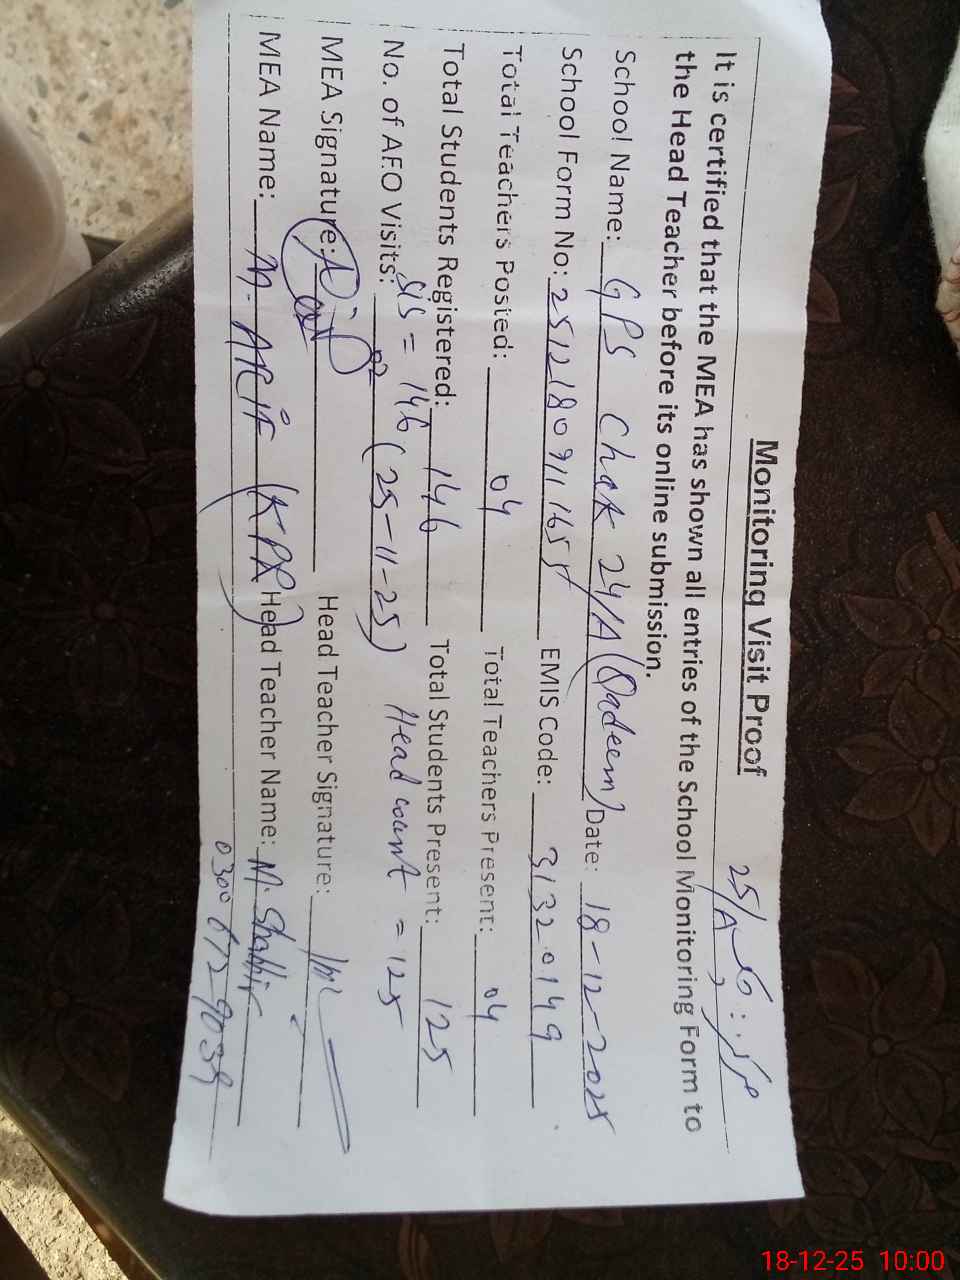 Monitoring Visit Proof
25/A
It is certified that the MEA has shown all entries of the School Monitoring Form to
the Head Teacher before its online submission.
School Name: GPS Chak 24/A (Qadeem) Date: 18-12-2025
School Form No: 2512180911655 EMIS Code: 31320149
Total Teachers Posted: 04 Total Teachers Present: 04
Total Students Registered: 146 Total Students Present: 125
SIS = 146 (25-11-25) Head count = 125
No. of AEO Visits: 02
MEA Signature: Head Teacher Signature:
MEA Name: M. ARIF (KPR) Head Teacher Name: M. Shabbir
0300 672-9039
18-12-25 10:00